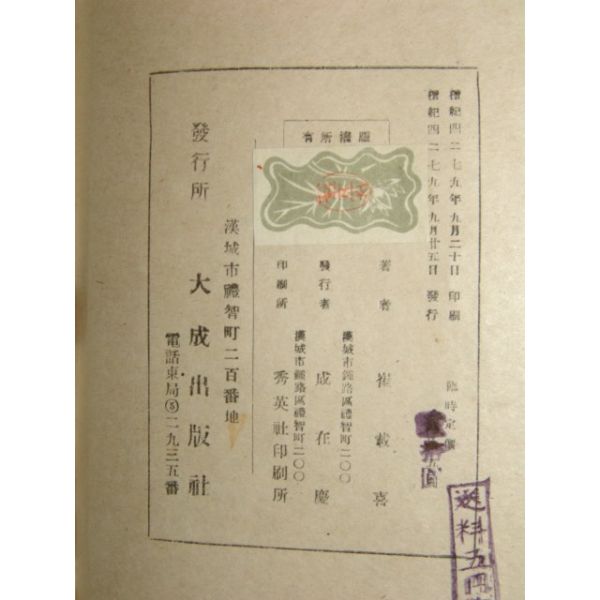 檀紀四二七九年九月二十日 印刷
檀紀四二七九年九月廿五日 發行
臨時定價
圓
版權所有
著者 崔載喜
漢城市鍾路區禮智町二〇〇
發行者 成在慶
漢城市鍾路區禮智町二〇〇
印刷所 秀英社印刷所
漢城市禮智町二百番地
發行所 大成出版社
電話東局⑤二九三五番
送料五円